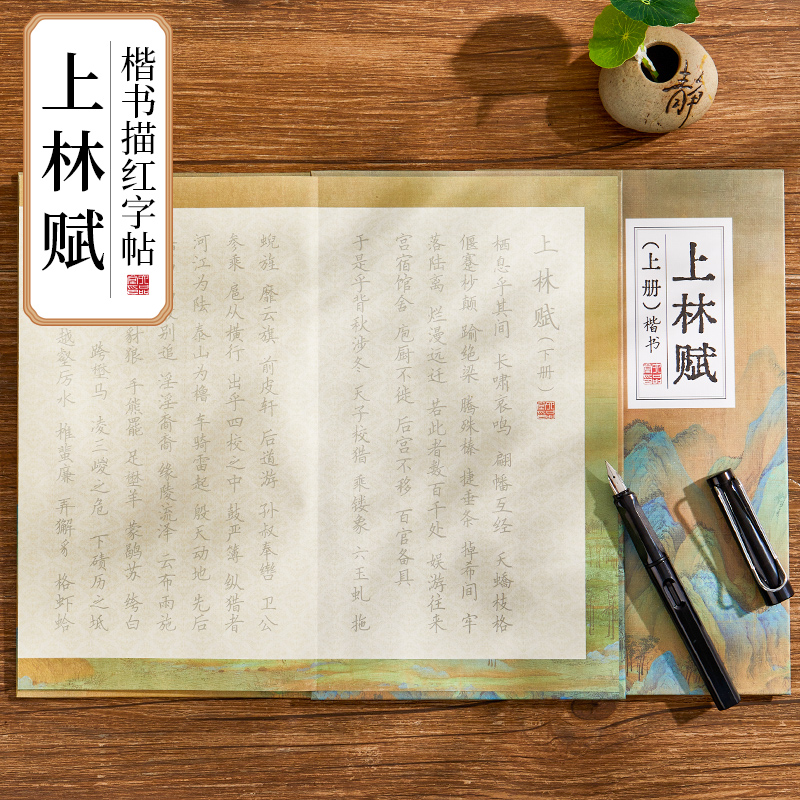 楷书描红字帖
上林赋
静
上林赋
(上册)楷书
上林赋(下册)
栖息乎其间 长啸哀鸣 翩幡互经 夭蟜枝格
偃蹇杪颠 踰绝梁 腾殊榛 捷垂条 掉希间 牢
落陆离 烂漫远迁 若此者数百千处 娱游往来
宫宿馆舍 庖厨不徙 后宫不移 百官备具
于是乎背秋涉冬 天子校猎 乘镂象 六玉虬 拖
蜺旌 靡云旗 前皮轩 后道游 孙叔奉辔 卫公
参乘 扈从横行 出乎四校之中 鼓严簿 纵猎者
河江为阹 泰山为橹 车骑雷起 殷天动地 先后
别追 淫淫裔裔 缘陵流泽 云布雨施
豺狼 手熊罴 足壄羊 蒙鹖苏 绔白
跨壄马 凌三嵕之危 下碛历之坻
越壑厉水 椎蜚廉 弄獬豸 格虾蛤